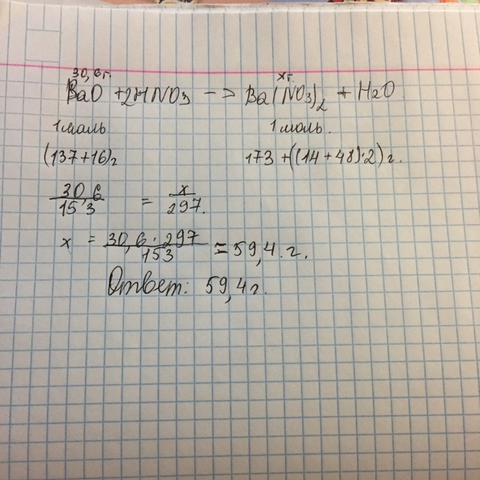 30,6г. xг
BaO + 2HNO3 -> Ba(NO3)2 + H2O
1 моль 1 моль.
(137+16)г 173 + ((14 + 48)·2) г.
30,6/153 = x/297.
x = 30,6 · 297/153 = 59,4 г.
Ответ: 59,4 г.